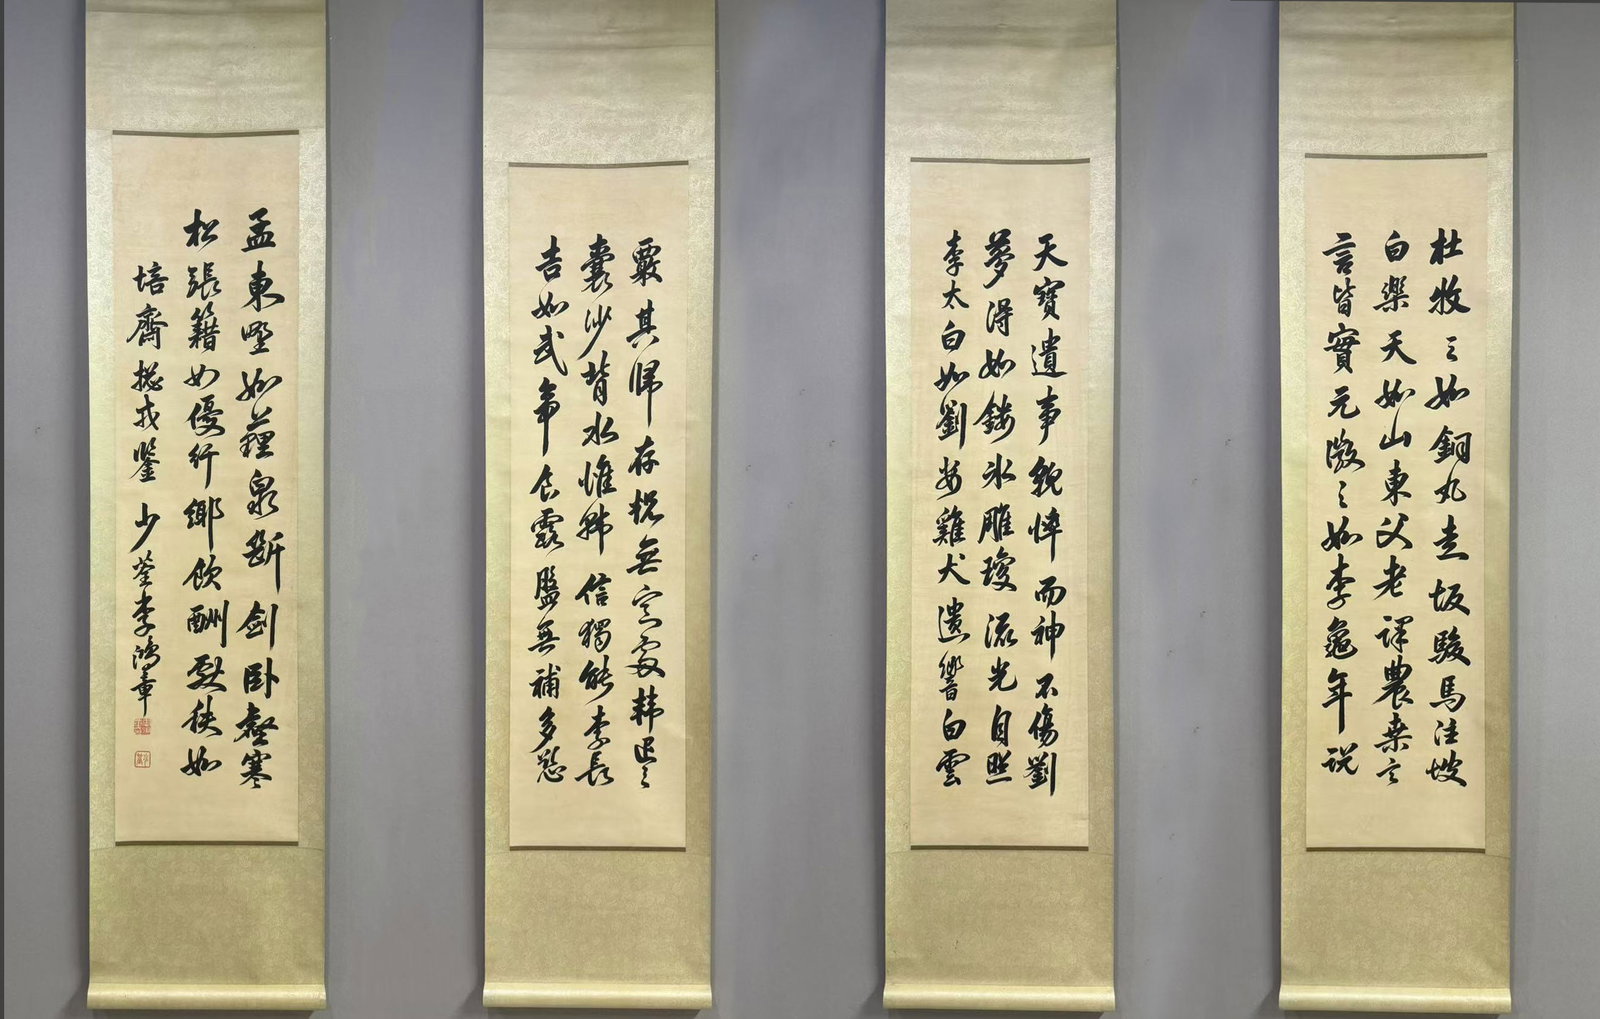 杜牧之如銅丸走坂駿馬注坡
白樂天如山東父老課農桑言
言皆實元微之如李龜年說
天寶遺事貌悴而神不傷劉
夢得如鏤冰雕瓊流光自照
李太白如劉安雞犬遺響白雲
覈其歸存恍無定處韓退之
囊沙背水惟韓信獨能李長
吉如武帝食露盤無補多慾
孟東野如薶泉斷劍臥壑寒
松張籍如優行鄉飲酬獻秩如
培齋搃戎鑒 少荃李鴻章